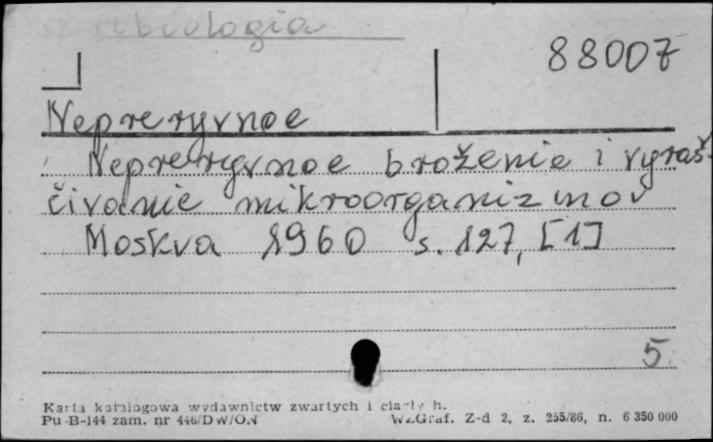 mikrobiologia
88007
Nepreryvnoe
Nepreryvnoe broženie i vyraš-
čivanie mikroorganizmov
Moskva 1960 s. 127, [1]
5.
Karta katalogowa wydawnictw zwartych i ciągły h.
Pu-B-144 zam. nr 446/DW/ON WZGraf. Z-d 2, z. 255/86, n. 6 350 000